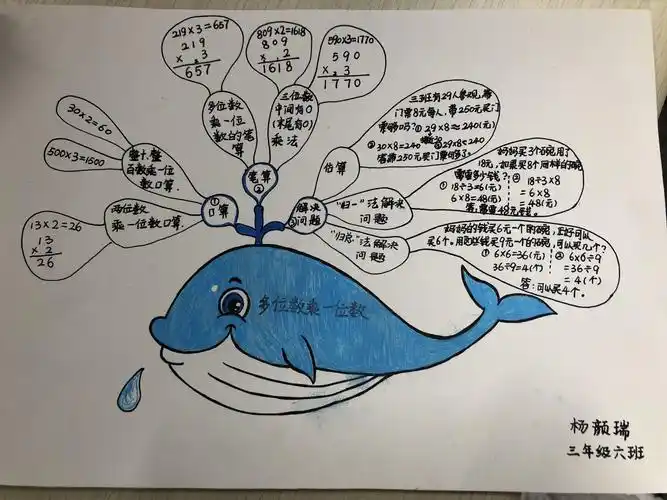 219×3=657
219
× 3
657
809×2=1618
809
× 2
1618
590×3=1770
590
× 3
1770
30×2=60
500×3=1500
整十、整
百数乘一位
数口算
13×2=26
13
× 2
26
两位数
乘一位数口算
多位数
乘一位
数的笔
算
三位数
中间有0
(末尾有0)
乘法
①
口算
笔算
②
解决
③问题
估算
三3班有29人参观,需
门票8元每人,带250元买门
票够吗?① 29×8≈240(元)
② 30×8=240 29×8<240
答:带250元买门票够了。
"归一"法解决
问题
妈妈买3个碗用了
18元,如果买8个同样的碗
需要多少钱?
① 18÷3=6(元)
6×8=48(元)
② 18÷3×8
=6×8
=48(元)
答:需要48元钱。
"归总"法解决
问题
妈妈的钱买6元一个的碗,正好可以
买6个,用这些钱买9元一个的碗,可以买几个?
① 6×6=36(元)
36÷9=4(个)
② 6×6÷9
=36÷9
=4(个)
答:可以买4个。
多位数乘一位数
杨颜瑞
三年级六班